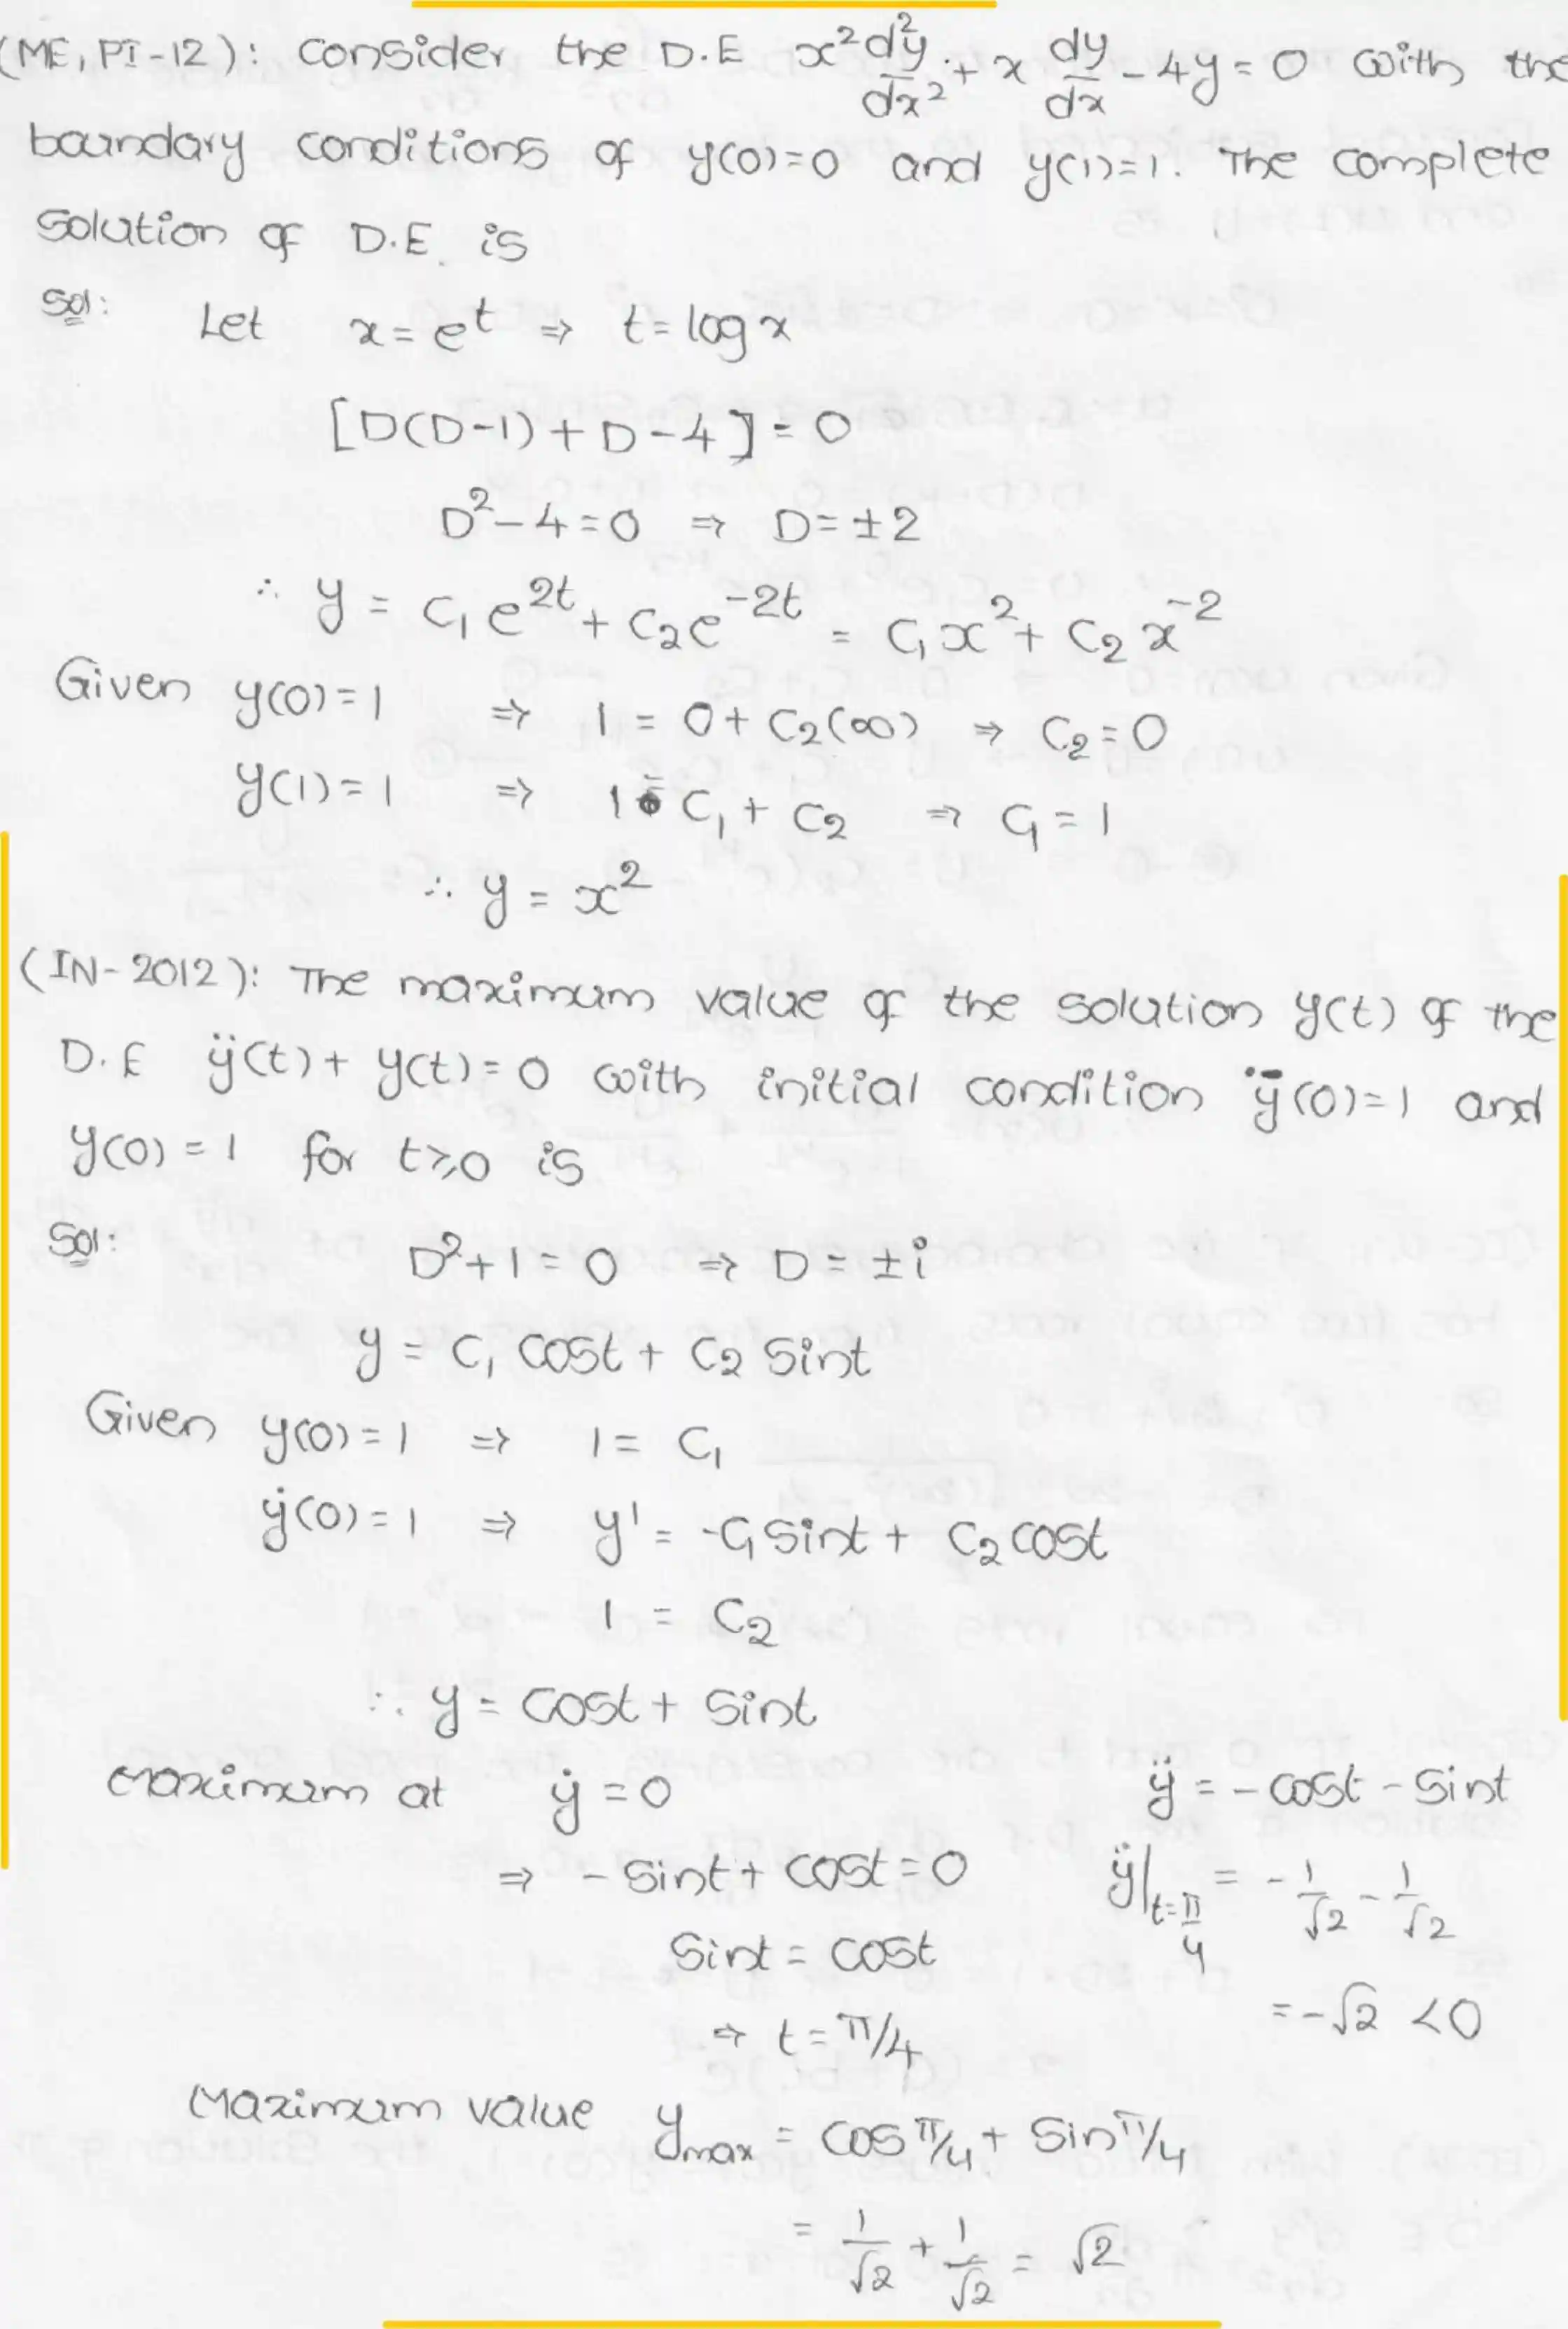 (ME, PI-12): Consider the D.E x² d²y/dx² + x dy/dx - 4y = 0 with the
boundary conditions of y(0)=0 and y(1)=1. The complete
Solution of D.E. is
Sol: Let x = e^t ⇒ t = log x
[D(D-1) + D - 4] = 0
D² - 4 = 0 ⇒ D = ±2
∴ y = C₁ e^{2t} + C₂ e^{-2t} = C₁ x² + C₂ x^{-2}
Given y(0) = 1 ⇒ 1 = 0 + C₂(∞) ⇒ C₂ = 0
y(1) = 1 ⇒ 1 = C₁ + C₂ ⇒ C₁ = 1
∴ y = x²
(IN-2012): The maximum value of the solution y(t) of the
D.E ÿ(t) + y(t) = 0 with initial condition ẏ(0)=1 and
y(0) = 1 for t ≥ 0 is
Sol: D² + 1 = 0 ⇒ D = ±i
y = C₁ cost + C₂ Sint
Given y(0) = 1 ⇒ 1 = C₁
ẏ(0) = 1 ⇒ y' = -C₁ Sint + C₂ cost
1 = C₂
∴ y = cost + Sint
Maximum at ẏ = 0 ÿ = - cost - Sint
⇒ - Sint + cost = 0 ÿ|t=π/4 = - 1/√2 - 1/√2
Sint = cost
= -√2 < 0
⇒ t = π/4
Maximum value y_max = cos π/4 + Sin π/4
= 1/√2 + 1/√2 = √2